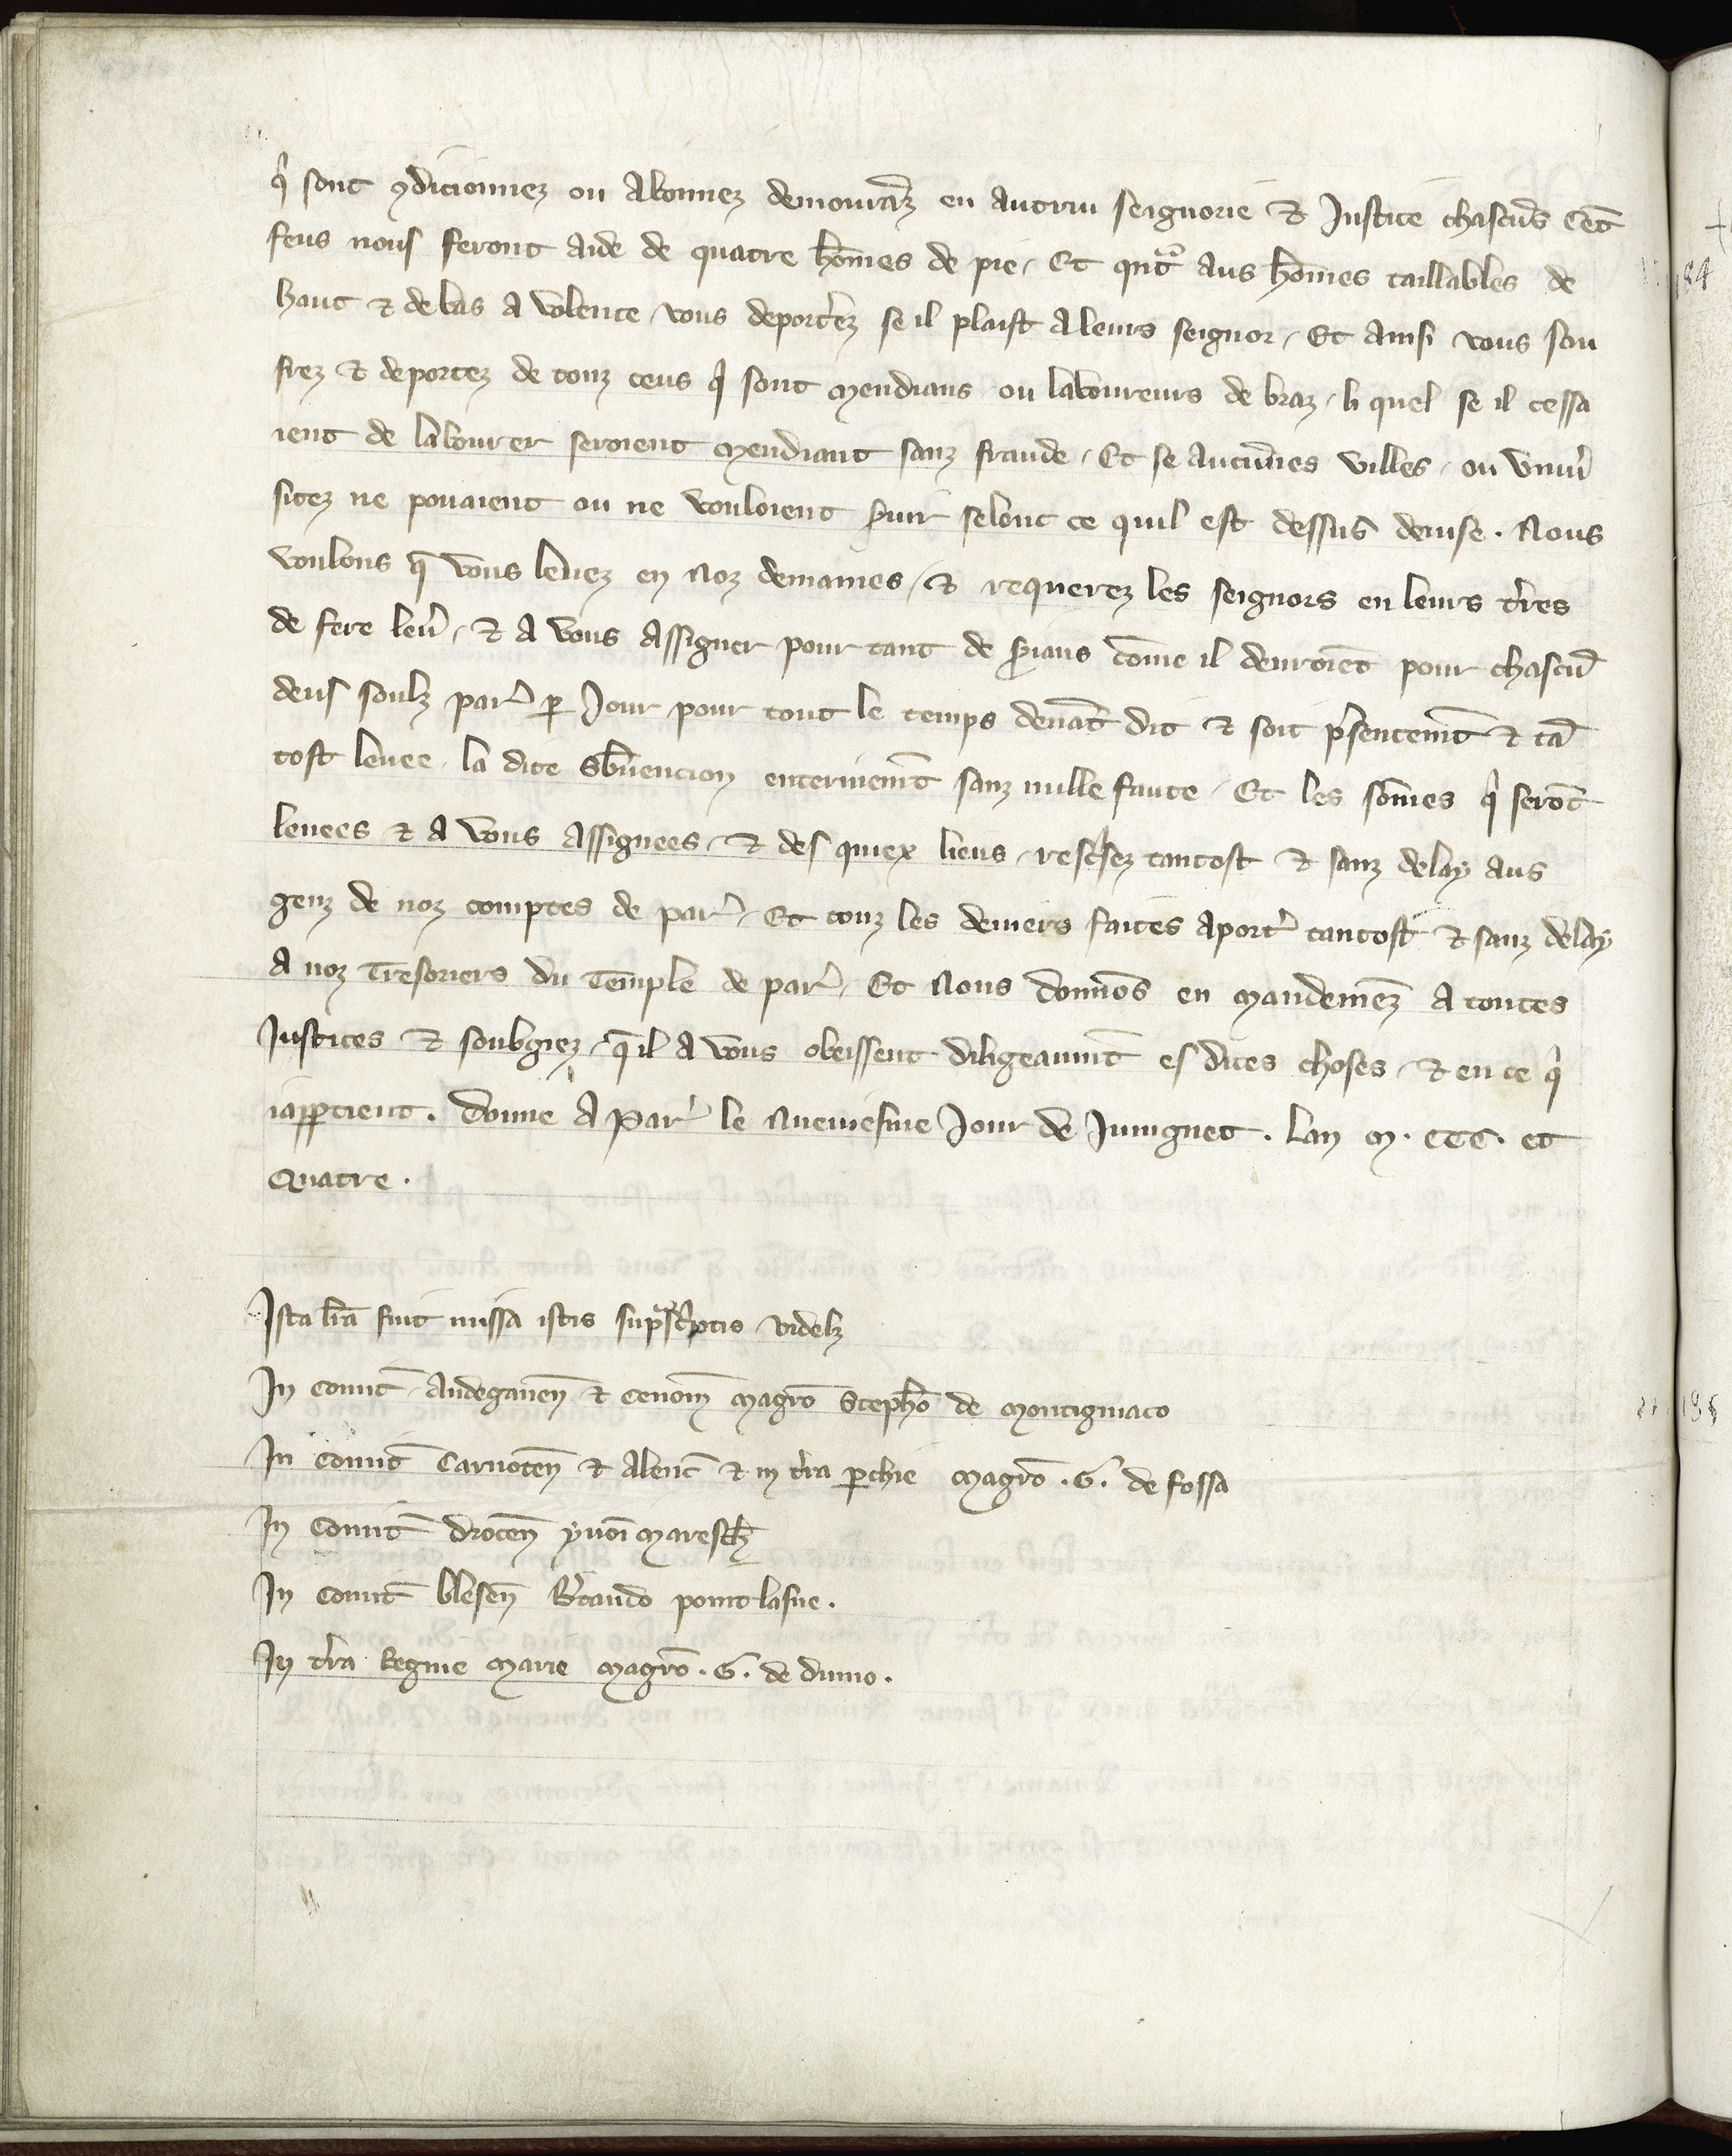 q̾ sont ꝯdicionnez ou Abonnez demourāz en autrui seignorie ⁊ Justice chascūs Cēt
feus nous feront aide de quatre hōmes de pie / Et qntᷓ aus hōmes taillables de
haut ⁊ de bas a volente / vous deport̾ez se il plaist a leurs seignor / Et ainsi vous sou
frez ⁊ deportez de touz ceus q̾ sont mendians ou laboureurs de braz / li quel se il cessa
ient de labourer seroient mendiant sanz fraude / Et se aucunes villes / ou vniu̾
sitez ne pouaient ou ne vouloient s̾uir selont ce quil est dessus deuise . Nous
voulons q̄ vous leuez en noz demaines / ⁊ requerez les seignors en leurs t̾res
de fere leu̾ / ⁊ a vous assigner pour tant de s̾ians cōme il deuroiēt pour chascū
deus soulz par̾ ꝑ Jour pour tout le temps deuāt dit ⁊ soit p̾sentemt̄ ⁊ tā
tost leuee la dite sbu̅encion enterinemt̄ sanz nulle faute / Et les sōmes q̾ serōt
leuees ⁊ a vous assignees / ⁊ des quiex lieus / resc̾sez tantost ⁊ sanz delay aus
genz de noz comptes de par̾ / Et touz les deniers faites aport̾ tantost ⁊ sanz delay
a noz Tresoriers du Temple de par̾ / Et Nous donnōs en mandemēz a toutes
Justices ⁊ soubgiez / q̄ il a vous obeissent diligeaumt̄ es dites choses / ⁊ en ce q̾
iaꝑtient . Donne A Par̾ le Nueuiesme Jour de Juingnet . Lan M . CCC . et
Quatre .
Ista lr̄a fuit missa istis supᷓsc̾ptis videlz
In comit̄ Andegauen̄ ⁊ Cenom̄ magrō Stephō de Montigniaco
In comit̄ Carnoten̄ ⁊ Alenc̄ ⁊ in t̾ra ꝑchie magrō . G . de fossa
In Comit̄ drocen̄ yuoī Maresch̄
In comit̄ blesen̄ B̾taudo point lasne .
In t̾ra Regine Marie magrō . G . de dumo .
184